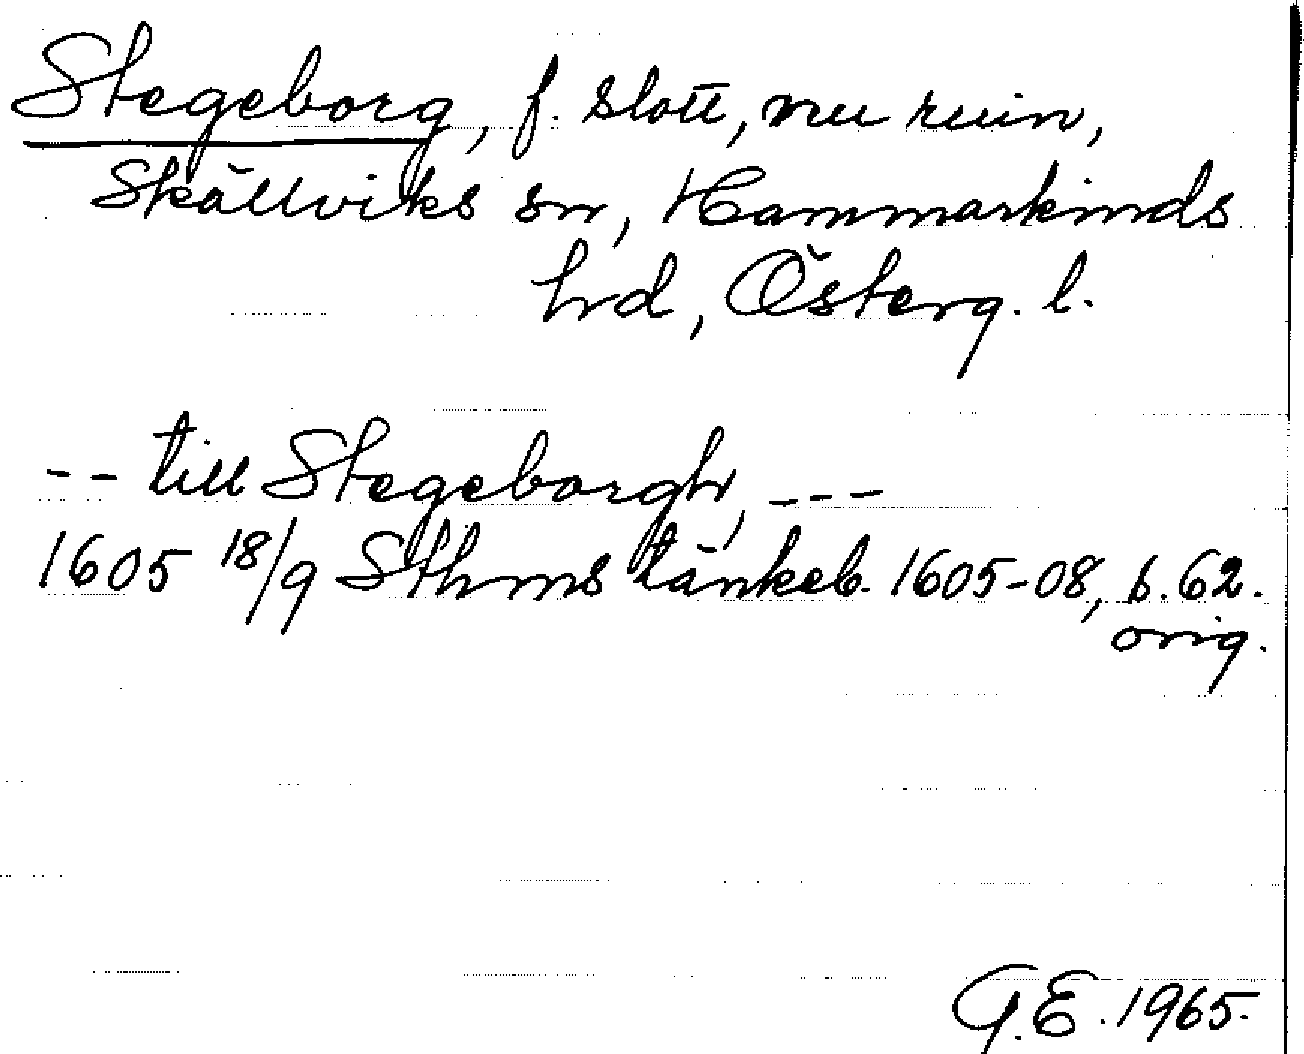 Stegeborg, f. slott, nu ruin,
Skällviks sn, Hammarkinds
hrd, Österg. l.
-- till Stegeborgh, ---
1605 18/9 Sthms tänkeb. 1605-08, b. 62.
orig.
G.E. 1965.